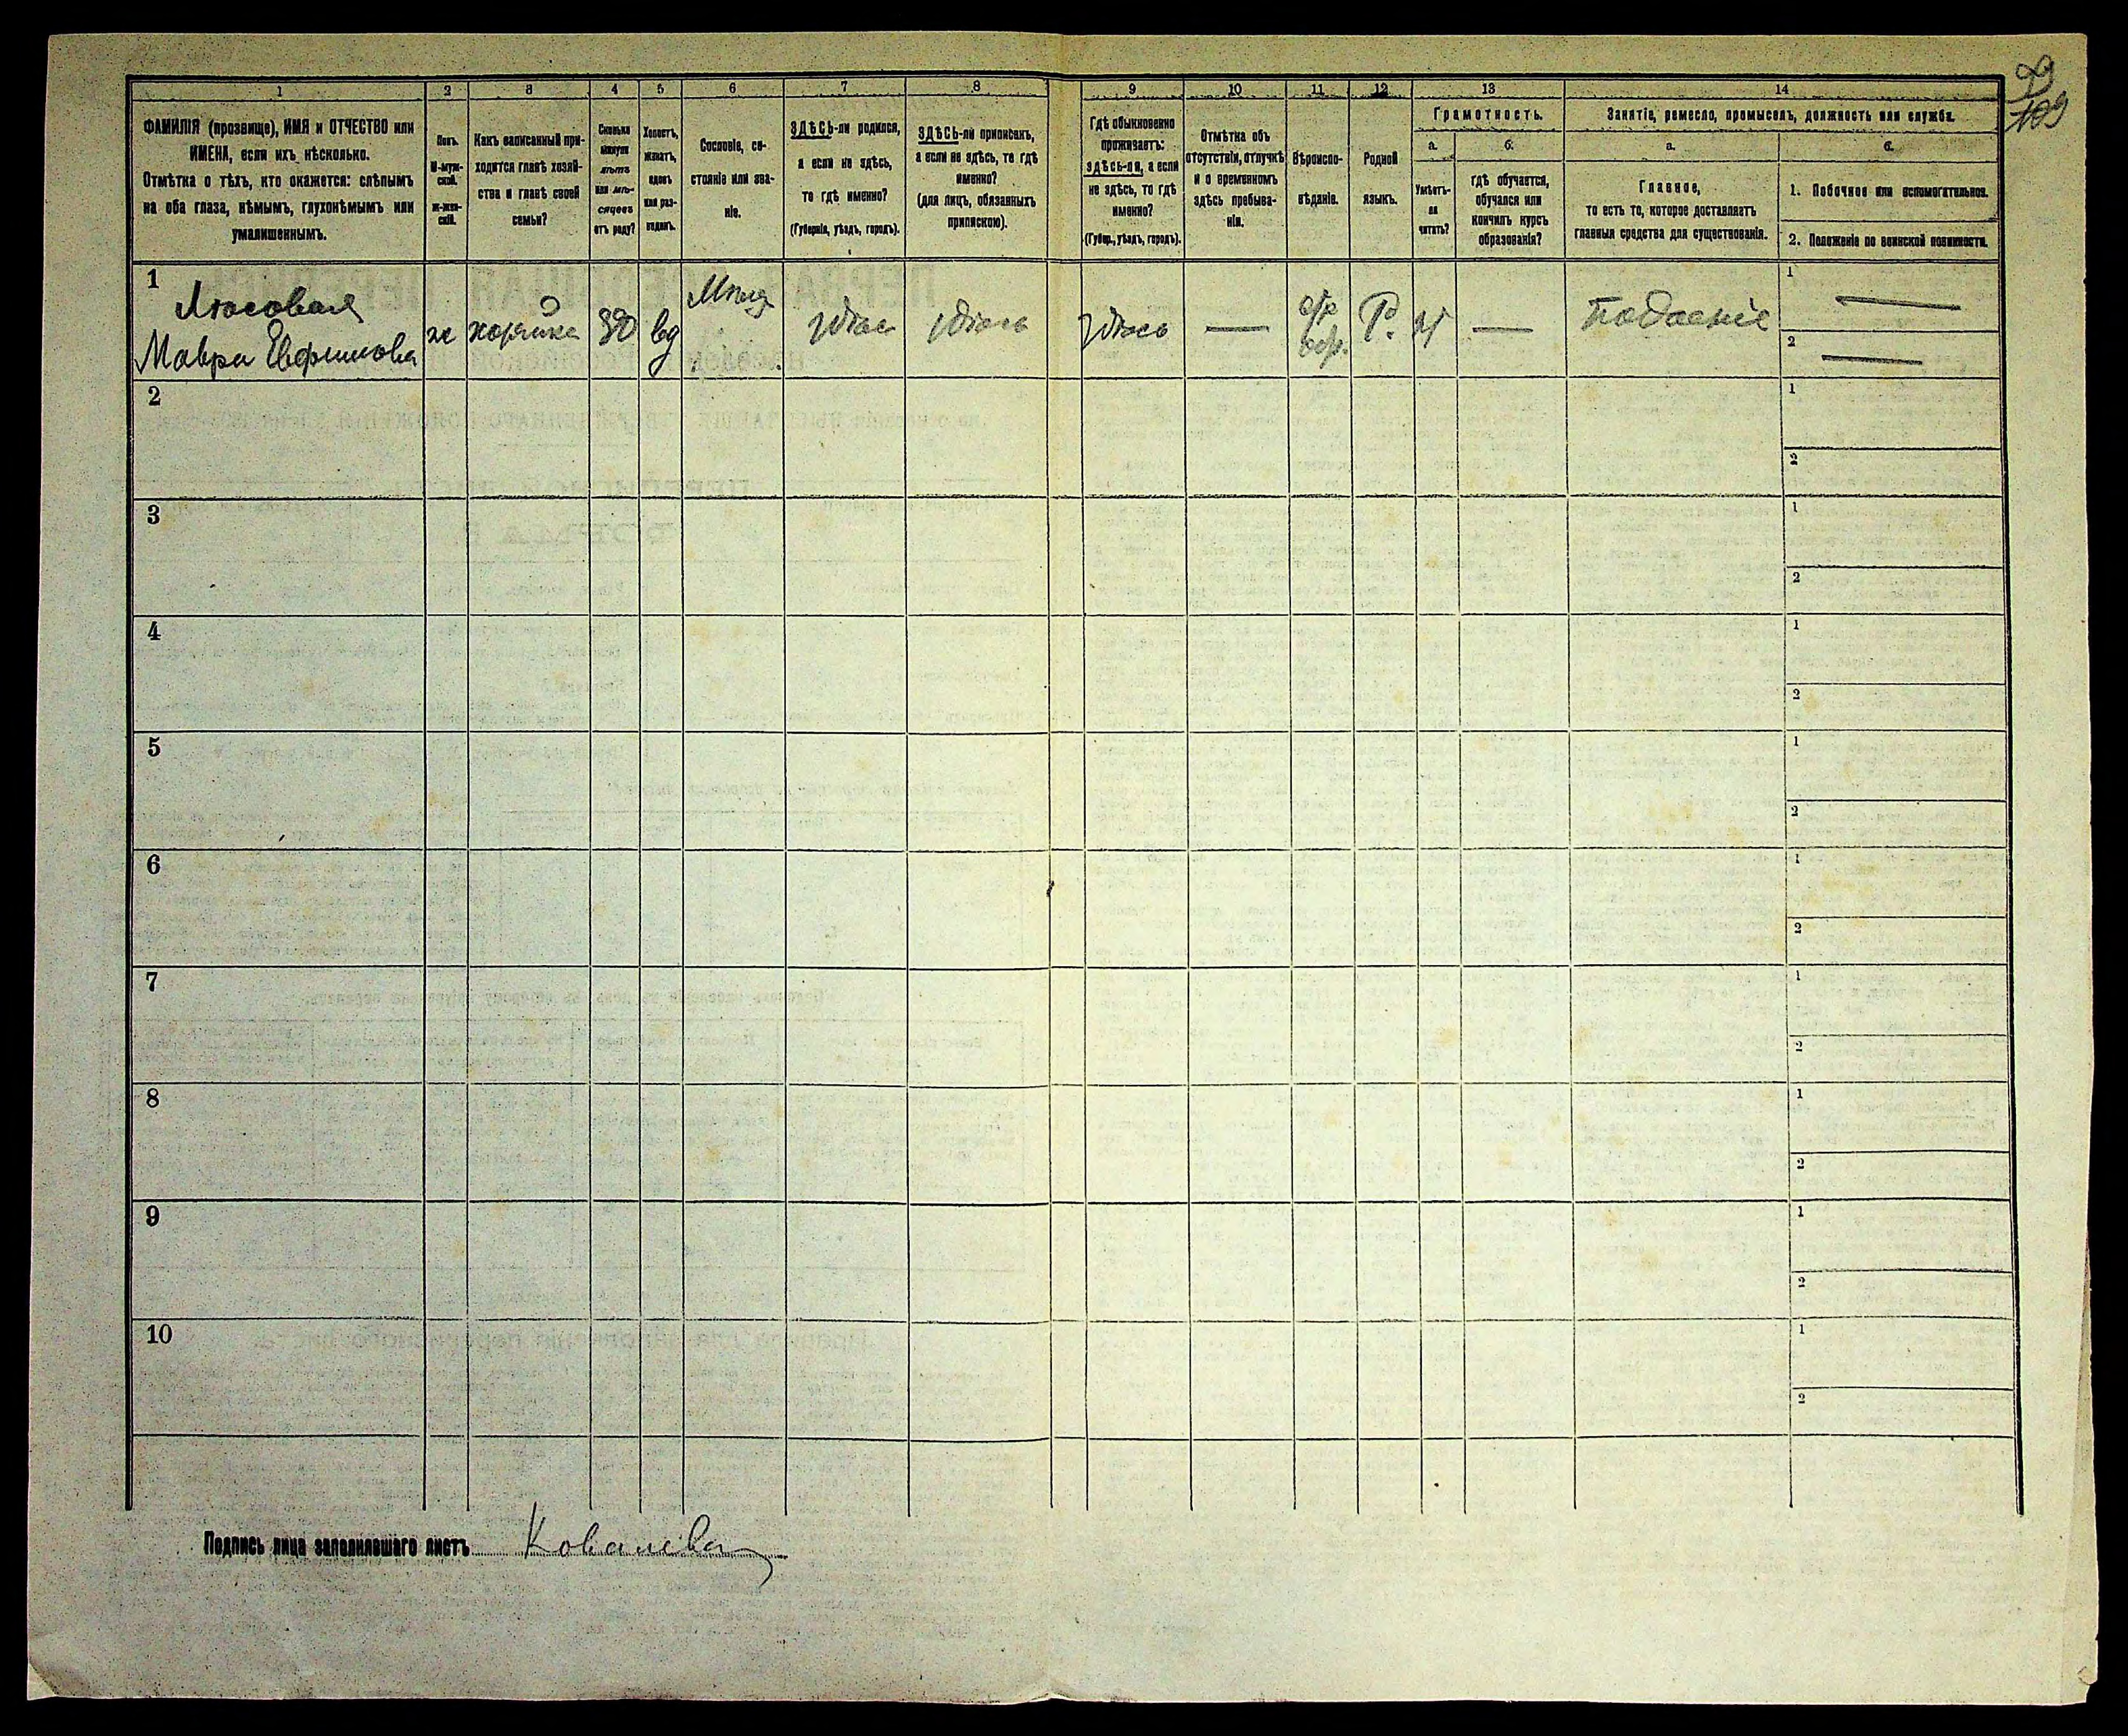 109
1
2
3
4
5
6
7
8
9
10
11
12
13
14
ФАМИЛІЯ (прозвище), ИМЯ и ОТЧЕСТВО или
ИМЕНА, если ихъ нѣсколько.
Отмѣтка о тѣхъ, кто окажется: слѣпымъ
на оба глаза, нѣмымъ, глухонѣмымъ или
умалишеннымъ.
Полъ.
М-муж-
ской.
ж-жен-
скій.
Какъ записанный при-
ходится главѣ хозяй-
ства и главѣ своей
семьи?
Сколько
минуло
лѣтъ
или мѣ-
сяцевъ
отъ роду?
Холостъ,
женатъ,
вдовъ
или раз-
веденъ.
Сословіе, со-
стояніе или зва-
ніе.
ЗДѢСЬ-ли родился,
а если не здѣсь,
то гдѣ именно?
(Губернія, уѣздъ, городъ).
ЗДѢСЬ-ли приписанъ,
а если не здѣсь, то гдѣ
именно?
(для лицъ, обязанныхъ
припискою).
Гдѣ обыкновенно
проживаетъ:
здѣсь-ли, а если
не здѣсь, то гдѣ
именно?
(Губер., уѣздъ, городъ).
Отмѣтка объ
отсутствіи, отлучкѣ
и о временномъ
здѣсь пребыва-
ніи.
Вѣроиспо-
вѣданіе.
Родной
языкъ.
Грамотность.
а.
Умѣетъ-
ли
читать?
б.
гдѣ обучается,
обучался или
кончилъ курсъ
образованія?
Занятіе, ремесло, промыселъ, должность или служба.
а.
Главное,
то есть то, которое доставляетъ
главныя средства для существованія.
1. Побочное или вспомогательное.
2. Положеніе по воинской повинности.
1
Мавра Евфимова
ж
хозяйка
вд
здѣсь
здѣсь
здѣсь
—
Р.
—
Подаенiе
1 —
2 —
2
1
2
3
1
2
4
1
2
5
1
2
6
1
2
7
1
2
8
1
2
9
1
2
10
1
2
Подпись лица заполнявшаго листъ